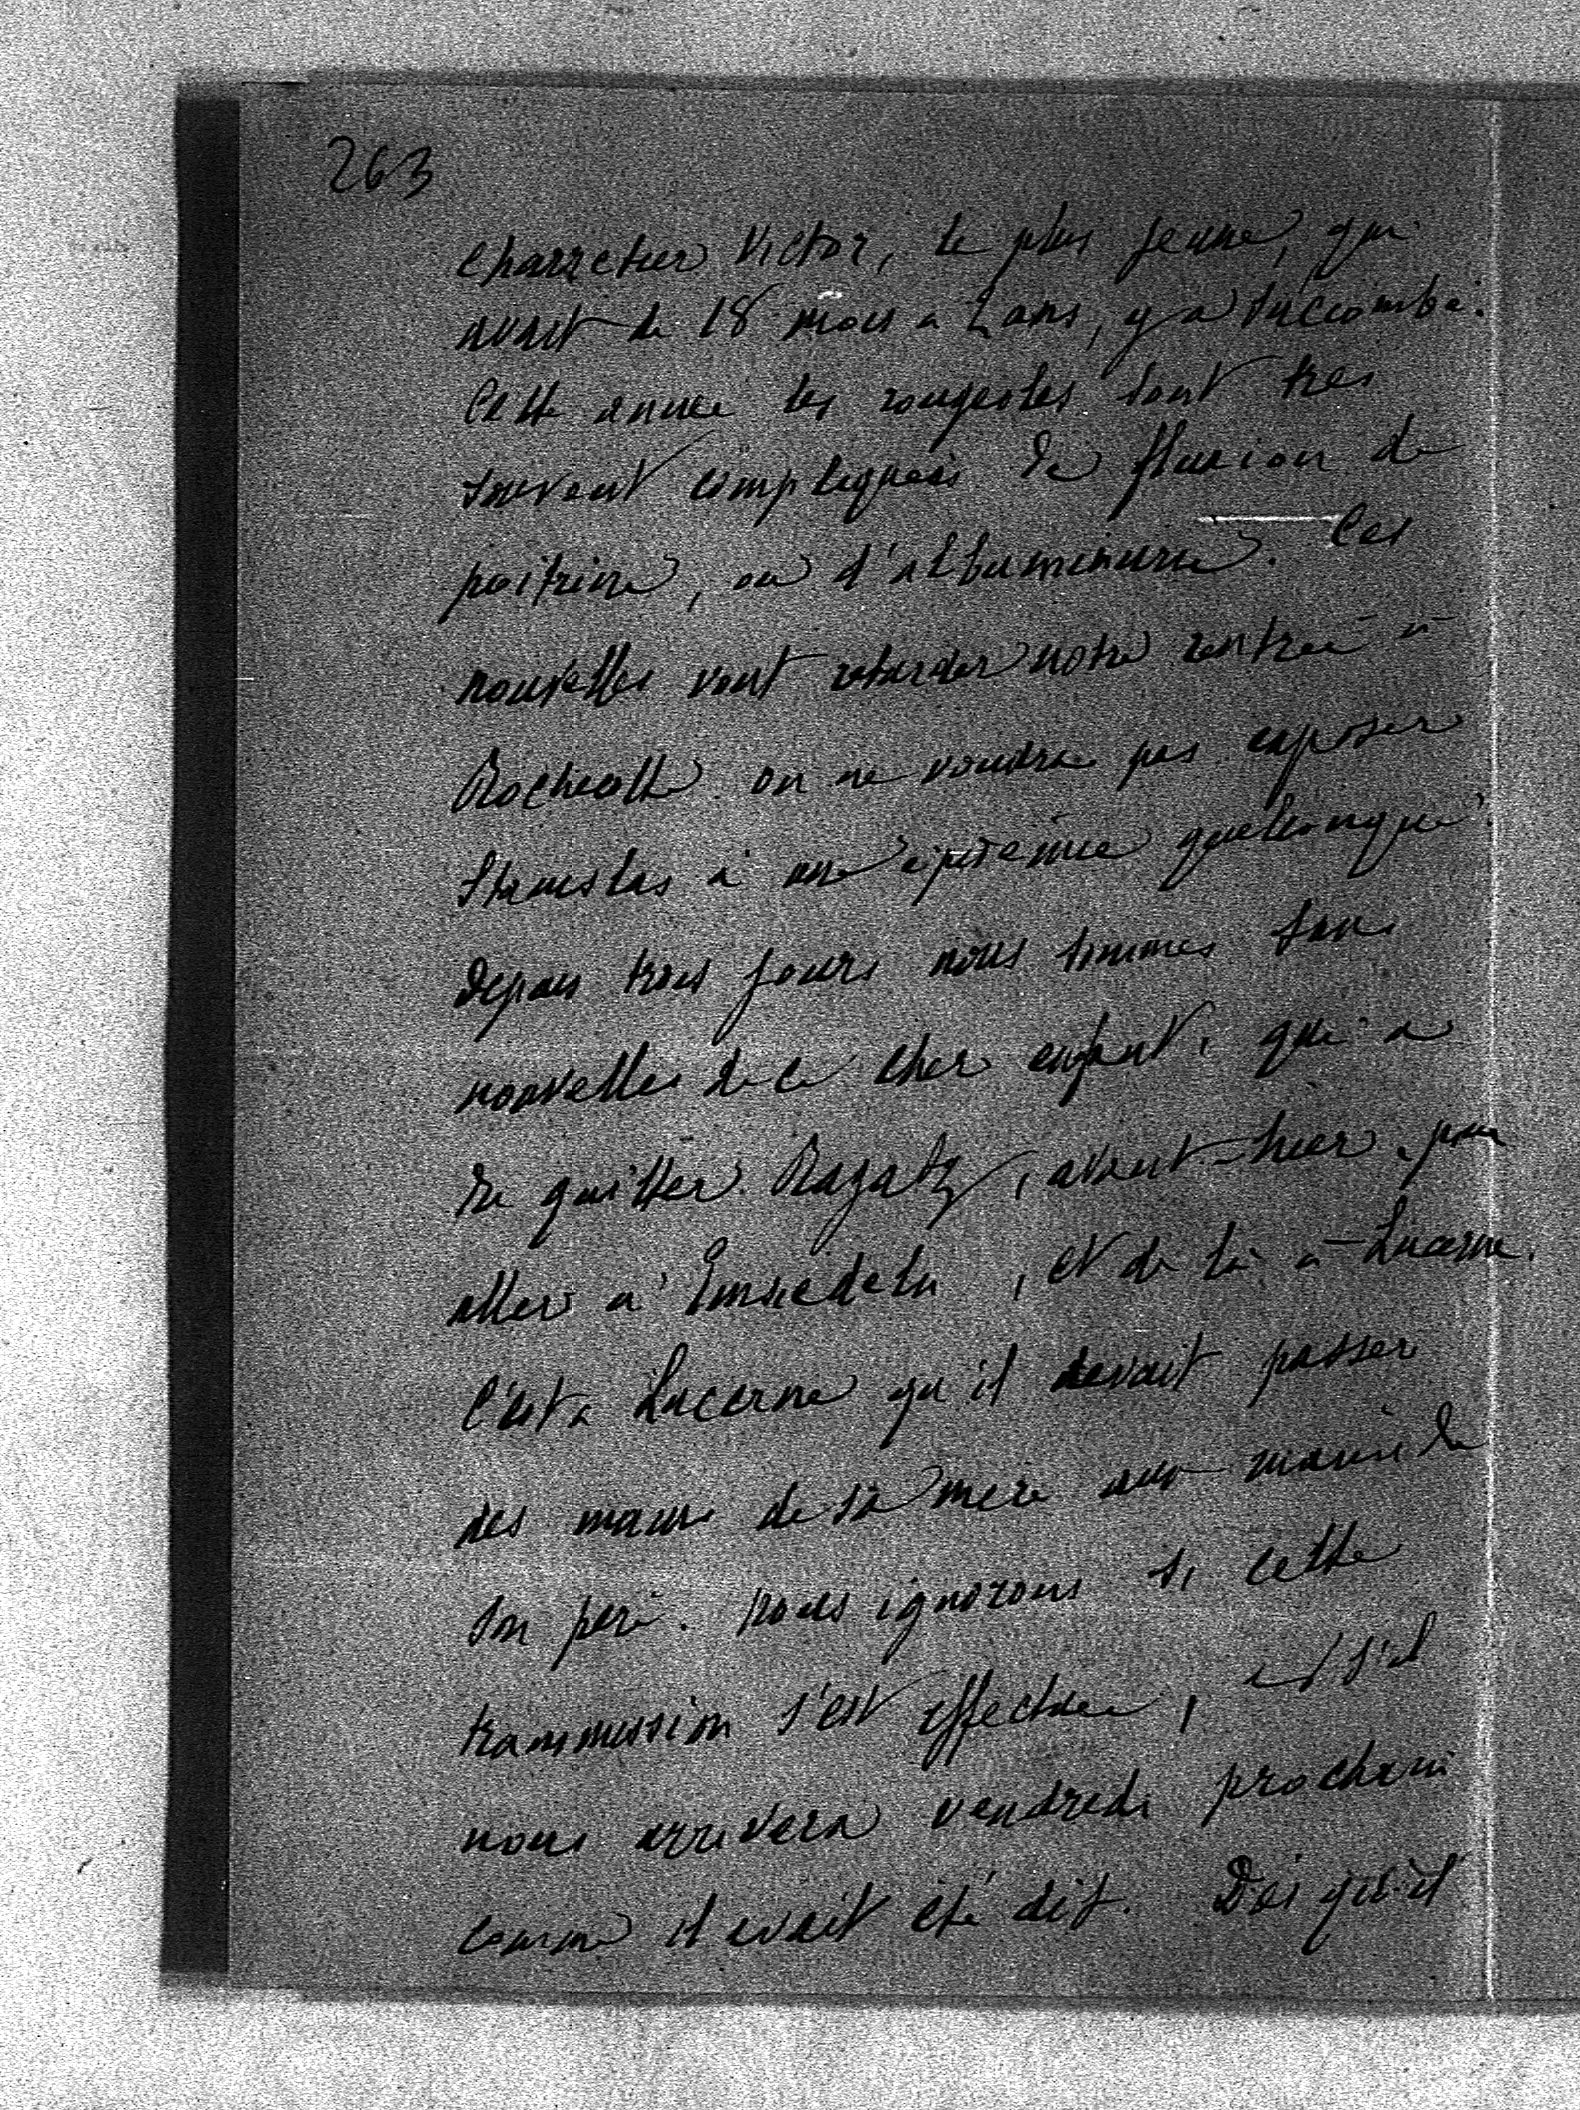 263
charretier Victor, le plus jeune, qui
avait de 18 mois a 2 ans, y a succombé.
Cette année les rougeoles sont très
souvent compliquées de fluxion de
poitrine, ou d'albuminurie. Ces
nouvelles vont retarder notre rentrée à
Rochecotte. on ne voudra pas exposer
Stanislas à une épidémie quelconque.
Depuis trois jours nous sommes sans
nouvelles de ce cher enfant, qui a
du quitter Ragatz, avant-hier pour
aller à Einsiedeln, et de là à Lucerne.
C'est a Lucerne qu'il devait passer
des mains de sa mère aux mains de
son père. Nous ignorons si cette
transmission s'est effectuée, et s'il
nous arrivera vendredi prochain
comme il avait été dit. Dès qu'il